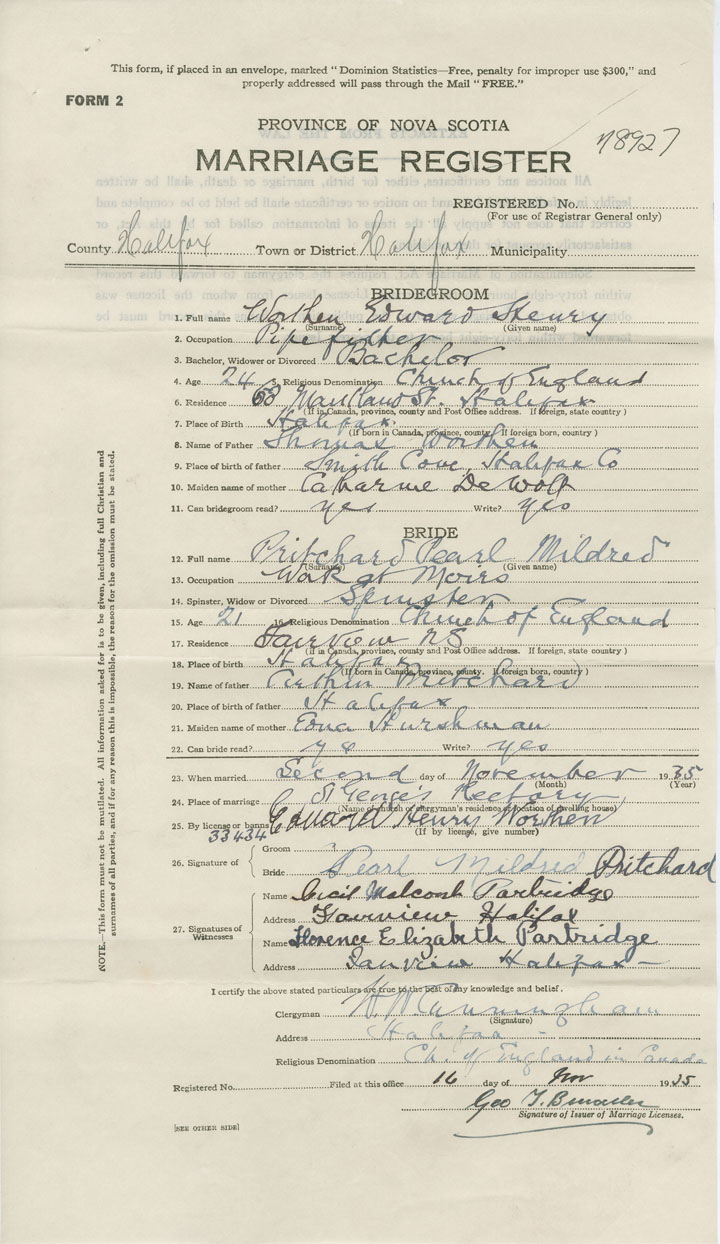 This form, if placed in an envelope, marked "Dominion Statistics—Free, penalty for improper use $300," and
properly addressed will pass through the Mail "FREE."
FORM 2
PROVINCE OF NOVA SCOTIA
78927
MARRIAGE REGISTER
REGISTERED No.
(For use of Registrar General only)
County Halifax Town or District Halifax Municipality
BRIDEGROOM
1. Full name Worthen Edward Henry
(Surname) (Given name)
2. Occupation Pipefitter
3. Bachelor, Widower or Divorced Bachelor
4. Age 24 5. Religious Denomination Church of England
6. Residence 63 Maitland St. Halifax
(If in Canada, province, county and Post Office address. If foreign, state country)
7. Place of Birth Halifax
(If born in Canada, province, county. If foreign born, country)
8. Name of Father Thomas Worthen
9. Place of birth of father Smith Cove, Halifax Co
10. Maiden name of mother Catharine DeWolf
11. Can bridegroom read? yes Write? yes
BRIDE
12. Full name Pritchard Pearl Mildred
(Surname) (Given name)
13. Occupation Work at Moirs
14. Spinster, Widow or Divorced Spinster
15. Age 21 16. Religious Denomination Church of England
17. Residence Fairview NS
(If in Canada, province, county and Post Office address. If foreign, state country)
18. Place of birth Halifax
(If born in Canada, province, county. If foreign born, country)
19. Name of father Arthur Pritchard
20. Place of birth of father Halifax
21. Maiden name of mother Edna Hurshman
22. Can bride read? yes Write? yes
23. When married Second day of November 1935
(Month) (Year)
24. Place of marriage St George's Rectory
(Name of church or clergyman's residence or location of dwelling house)
25. By license or banns Edward Henry Worthen
33434 (If by license, give number)
26. Signature of
Groom
Bride Pearl Mildred Pritchard
27. Signatures of Witnesses
Name Cecil Malcolm Partridge
Address Fairview Halifax
Name Florence Elizabeth Partridge
Address Fairview Halifax
I certify the above stated particulars are true to the best of my knowledge and belief.
Clergyman Cunningham
(Signature)
Address Halifax
Religious Denomination Ch. of England in Canada
Registered No. Filed at this office 16 day of Nov 1935
Geo
Signature of Issuer of Marriage Licenses.
[SEE OTHER SIDE]
NOTE.—This form must not be mutilated. All information asked for is to be given, including full Christian and
surnames of all parties, and if for any reason this is impossible, the reason for the omission must be stated.